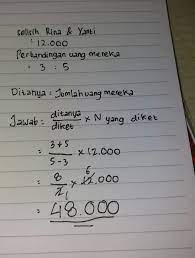 selisih Rina & Yanti
: 12.000
Perbandingan uang mereka
: 3 : 5
Ditanya : Jomlah uang mereka
Jawab : ditanya / diket × N yang diket
: 3+5 / 5-3 × 12.000
: 8 / 2 1 × 6 12.000
: 48.000